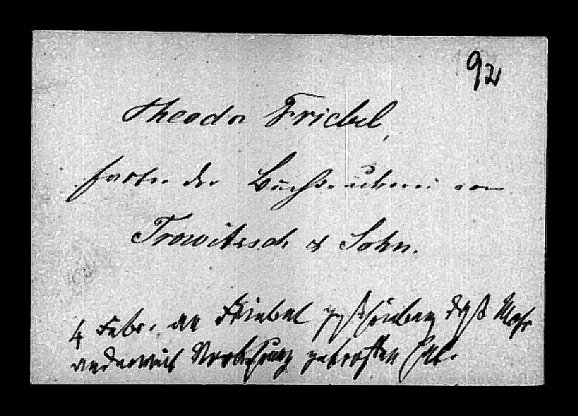 92
Theodor Friebel,
Faktor der Buchdruckerei von
Trowitzsch & Sohn.
4 Febr. an Friebel geschrieben daß
anderweit getroffen